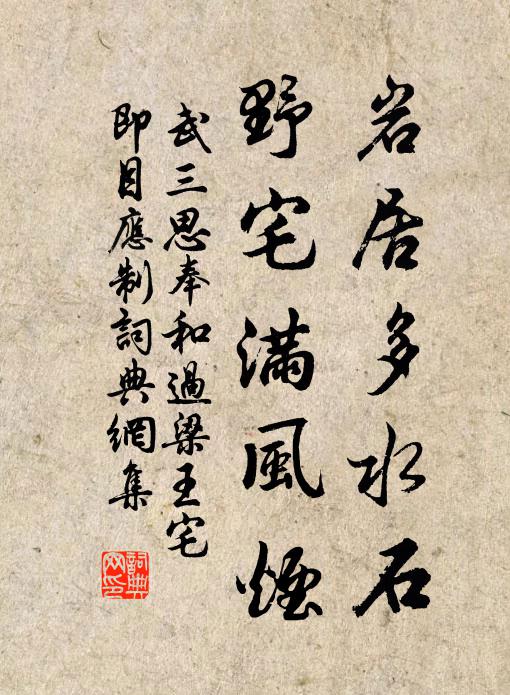 岩居多水石
野宅滿風煙
武三思奉和過梁王宅
即目應制詞典網集
詞典網印